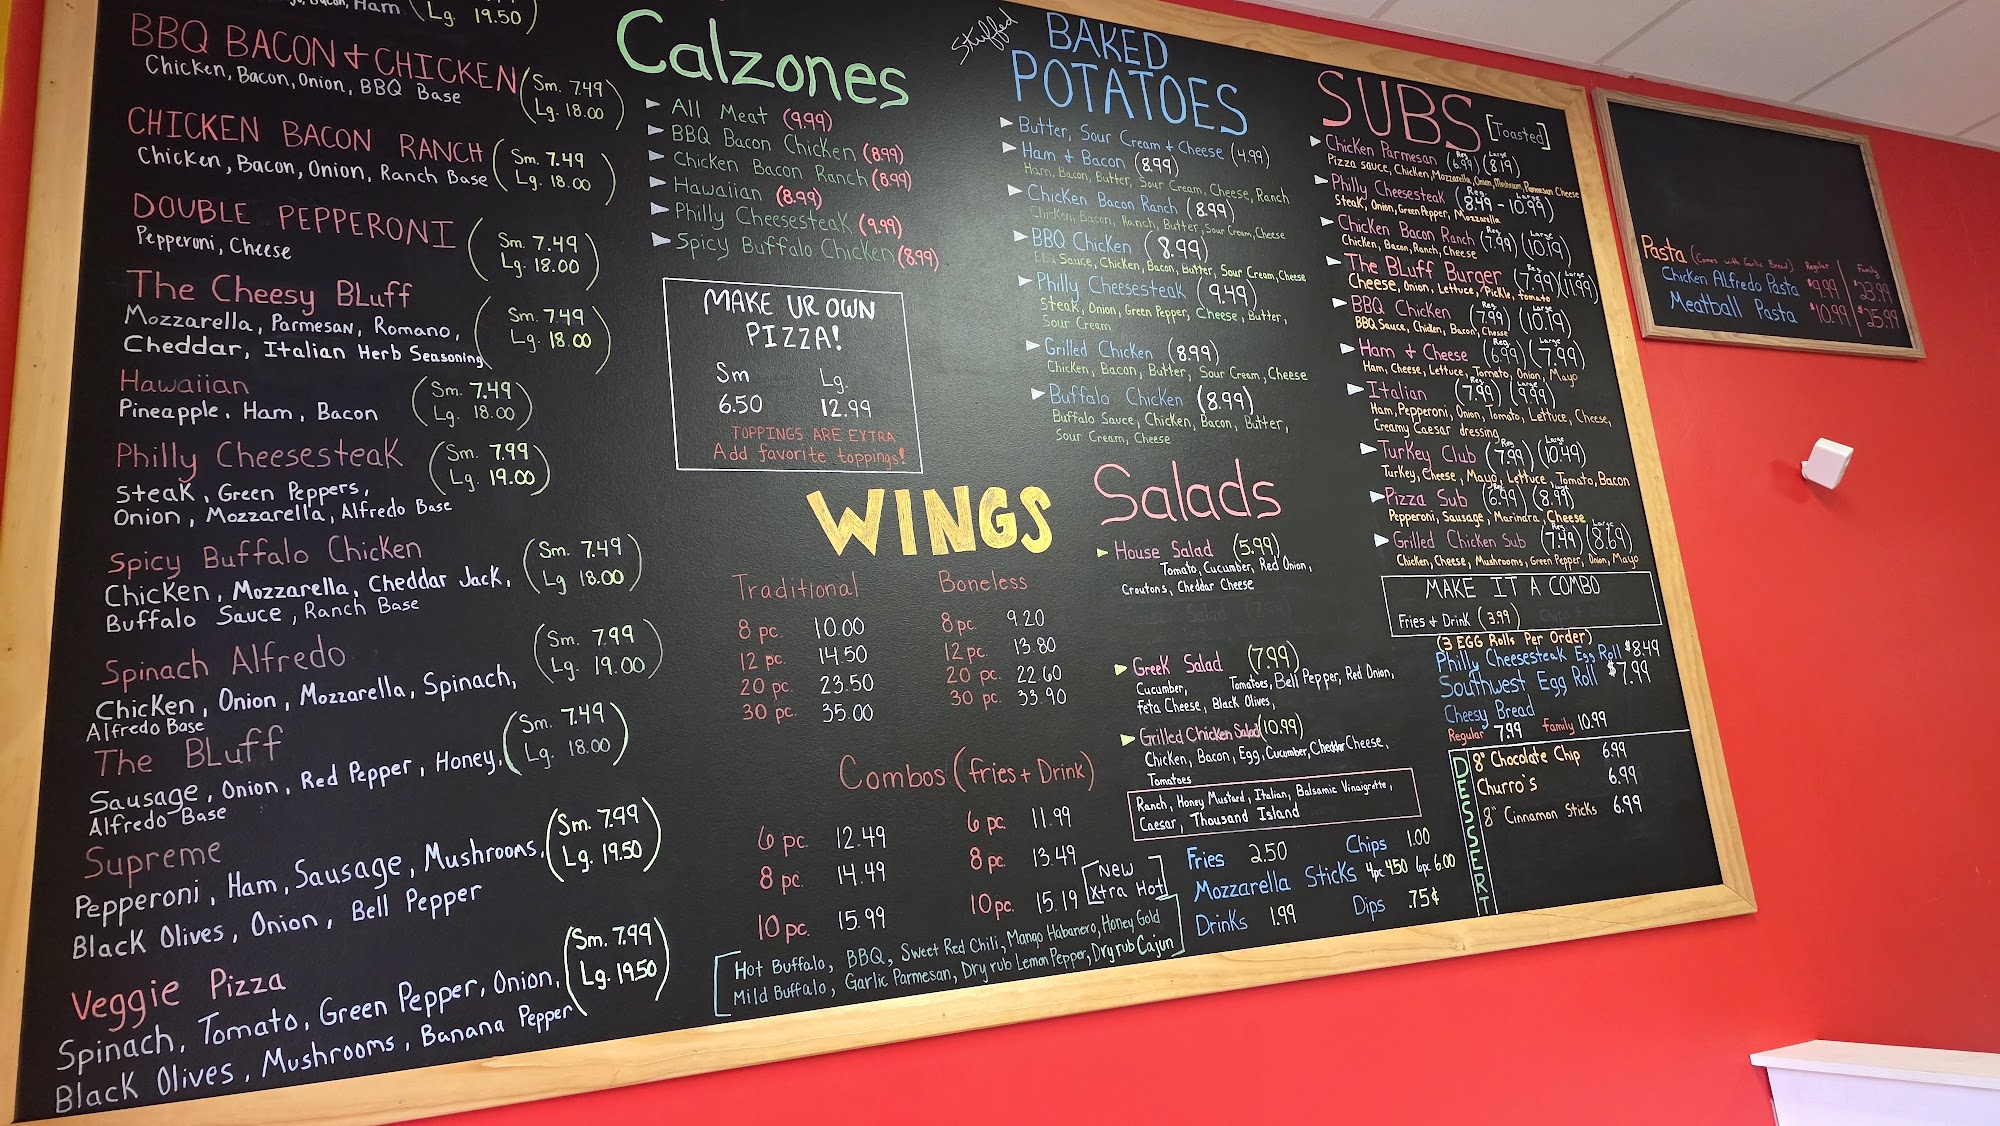 Bacon, Ham
Lg. 19.50
BBQ BACON + CHICKEN
Chicken, Bacon, Onion, BBQ Base
Sm. 7.49
Lg. 18.00
CHICKEN BACON RANCH
Chicken, Bacon, Onion, Ranch Base
Sm. 7.49
Lg. 18.00
DOUBLE PEPPERONI
Pepperoni, Cheese
Sm. 7.49
Lg. 18.00
The Cheesy BLuff
Mozzarella, Parmesan, Romano,
Cheddar, Italian Herb Seasoning
Sm. 7.49
Lg. 18.00
Hawaiian
Pineapple, Ham, Bacon
Sm. 7.49
Lg. 18.00
Philly Cheesesteak
Steak, Green Peppers,
Onion, Mozzarella, Alfredo Base
Sm. 7.99
Lg. 19.00
Spicy Buffalo Chicken
Chicken, Mozzarella, Cheddar Jack,
Buffalo Sauce, Ranch Base
Sm. 7.49
Lg 18.00
Spinach Alfredo
Chicken, Onion, Mozzarella, Spinach,
Alfredo Base
Sm. 7.99
Lg. 19.00
The BLuff
Sausage, Onion, Red Pepper, Honey,
Alfredo Base
Sm. 7.49
Lg. 18.00
Supreme
Pepperoni, Ham, Sausage, Mushrooms,
Black Olives, Onion, Bell Pepper
Sm. 7.99
Lg. 19.50
Veggie Pizza
Spinach, Tomato, Green Pepper, Onion,
Black Olives, Mushrooms, Banana Pepper
Sm. 7.99
Lg. 19.50
Calzones
All Meat (9.99)
BBQ Bacon Chicken (8.99)
Chicken Bacon Ranch (8.99)
Hawaiian (8.99)
Philly Cheesesteak (9.99)
Spicy Buffalo Chicken (8.99)
MAKE UR OWN
PIZZA!
Sm Lg.
6.50 12.99
TOPPINGS ARE EXTRA
Add favorite toppings!
WINGS
Traditional Boneless
8 pc. 10.00 8 pc. 9.20
12 pc. 14.50 12 pc. 13.80
20 pc. 23.50 20 pc. 22.60
30 pc. 35.00 30 pc. 33.90
Combos (fries + Drink)
6 pc. 12.49 6 pc. 11.99
8 pc. 14.49 8 pc. 13.49
10 pc. 15.99 10 pc. 15.19
[New
Xtra Hot]
Hot Buffalo, BBQ, Sweet Red Chili, Mango Habanero, Honey Gold
Mild Buffalo, Garlic Parmesan, Dry rub Lemon Pepper, Dry rub Cajun
Stuffed
BAKED
POTATOES
Butter, Sour Cream + Cheese (4.99)
Ham + Bacon (8.99)
Ham, Bacon, Butter, Sour Cream, Cheese, Ranch
Chicken Bacon Ranch (8.99)
Chicken, Bacon, Ranch, Butter, Sour Cream, Cheese
BBQ Chicken (8.99)
BBQ Sauce, Chicken, Bacon, Butter, Sour Cream, Cheese
Philly Cheesesteak (9.49)
Steak, Onion, Green Pepper, Cheese, Butter,
Sour Cream
Grilled Chicken (8.99)
Chicken, Bacon, Butter, Sour Cream, Cheese
Buffalo Chicken (8.99)
Buffalo Sauce, Chicken, Bacon, Butter,
Sour Cream, Cheese
Salads
House Salad (5.99)
Tomato, Cucumber, Red Onion,
Croutons, Cheddar Cheese
Greek Salad (7.99)
Cucumber, Tomatoes, Bell Pepper, Red Onion,
feta Cheese, Black Olives,
Grilled Chicken Salad (10.99)
Chicken, Bacon, Egg, Cucumber, Cheddar Cheese,
Tomatoes
Ranch, Honey Mustard, Italian, Balsamic Vinaigrette,
Caesar, Thousand Island
Fries 2.50 Chips 1.00
Mozzarella Sticks 4pc 4.50 6pc 6.00
Drinks 1.99 Dips .75¢
SUBS [Toasted]
Reg. Large
Chicken Parmesan (6.99) (8.19)
Pizza sauce, Chicken, Mozzarella, Onion, Mushroom, Parmesan Cheese
Reg. Large
Philly Cheesesteak (8.49 - 10.99)
Steak, Onion, Green Pepper, Mozzarella
Reg Large
Chicken Bacon Ranch (7.99) (10.19)
Chicken, Bacon, Ranch, Cheese
Reg Large
The BLuff Burger (7.99) (11.99)
Cheese, Onion, Lettuce, Pickle, tomato
Reg. Large
BBQ Chicken (7.99) (10.19)
BBQ Sauce, Chicken, Bacon, Cheese
Reg. Large
Ham + Cheese (6.99) (7.99)
Ham, Cheese, Lettuce, Tomato, Onion, Mayo
Reg. Large
Italian (7.99) (9.99)
Ham, Pepperoni, Onion, Tomato, Lettuce, Cheese,
Creamy Caesar dressing
Reg. Large
Turkey Club (7.99) (10.49)
Turkey, Cheese, Mayo, Lettuce, Tomato, Bacon
Reg. Large
Pizza Sub (6.99) (8.99)
Pepperoni, Sausage, Marindra, Cheese
Reg. Large
Grilled Chicken Sub (7.49) (8.69)
Chicken, Cheese, Mushrooms, Green Pepper, Onion, Mayo
MAKE IT A COMBO
Fries + Drink (3.99)
(3 EGG Rolls Per Order)
Philly Cheesesteak Egg Roll $8.49
Southwest Egg Roll $7.99
Cheesy Bread
Regular 7.99 family 10.99
DESSERT
8" Chocolate Chip 6.99
Churro's 6.99
8" Cinnamon Sticks 6.99
Pasta (Comes with Garlic Bread) Regular Family
Chicken Alfredo Pasta $9.99 $23.99
Meatball Pasta $10.99 $25.99